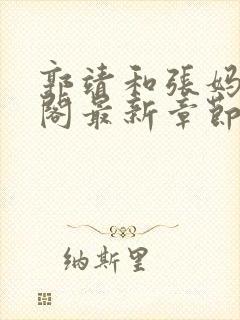 郭靖和張妈
閣最新章節
纳斯里